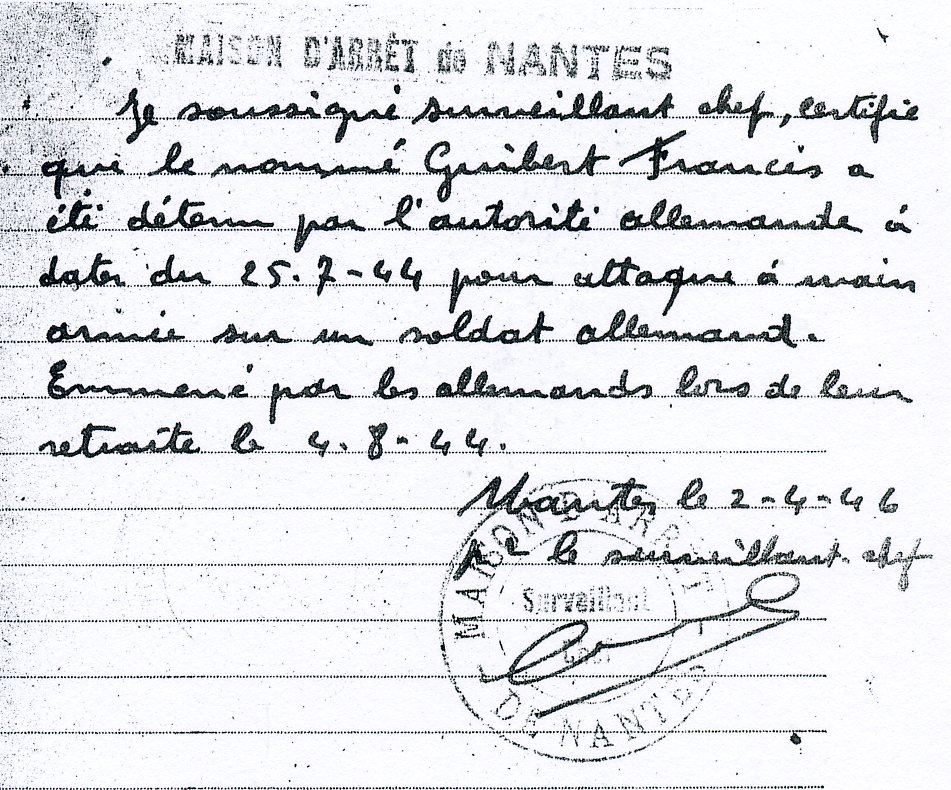 MAISON D'ARRÊT de NANTES
Je soussigné surveillant chef, certifie
que le nommé Guibert Francis a
été détenu par l'autorité allemande à
dater du 25.7-44 pour attaque à main
armée sur un soldat allemand.
Emmené par les allemands lors de leur
retraite le 4.8-44.
Nantes le 2-4-46
pr le surveillant-chef
MAISON D'ARRET
Surveillant
Chef
DE NANTES